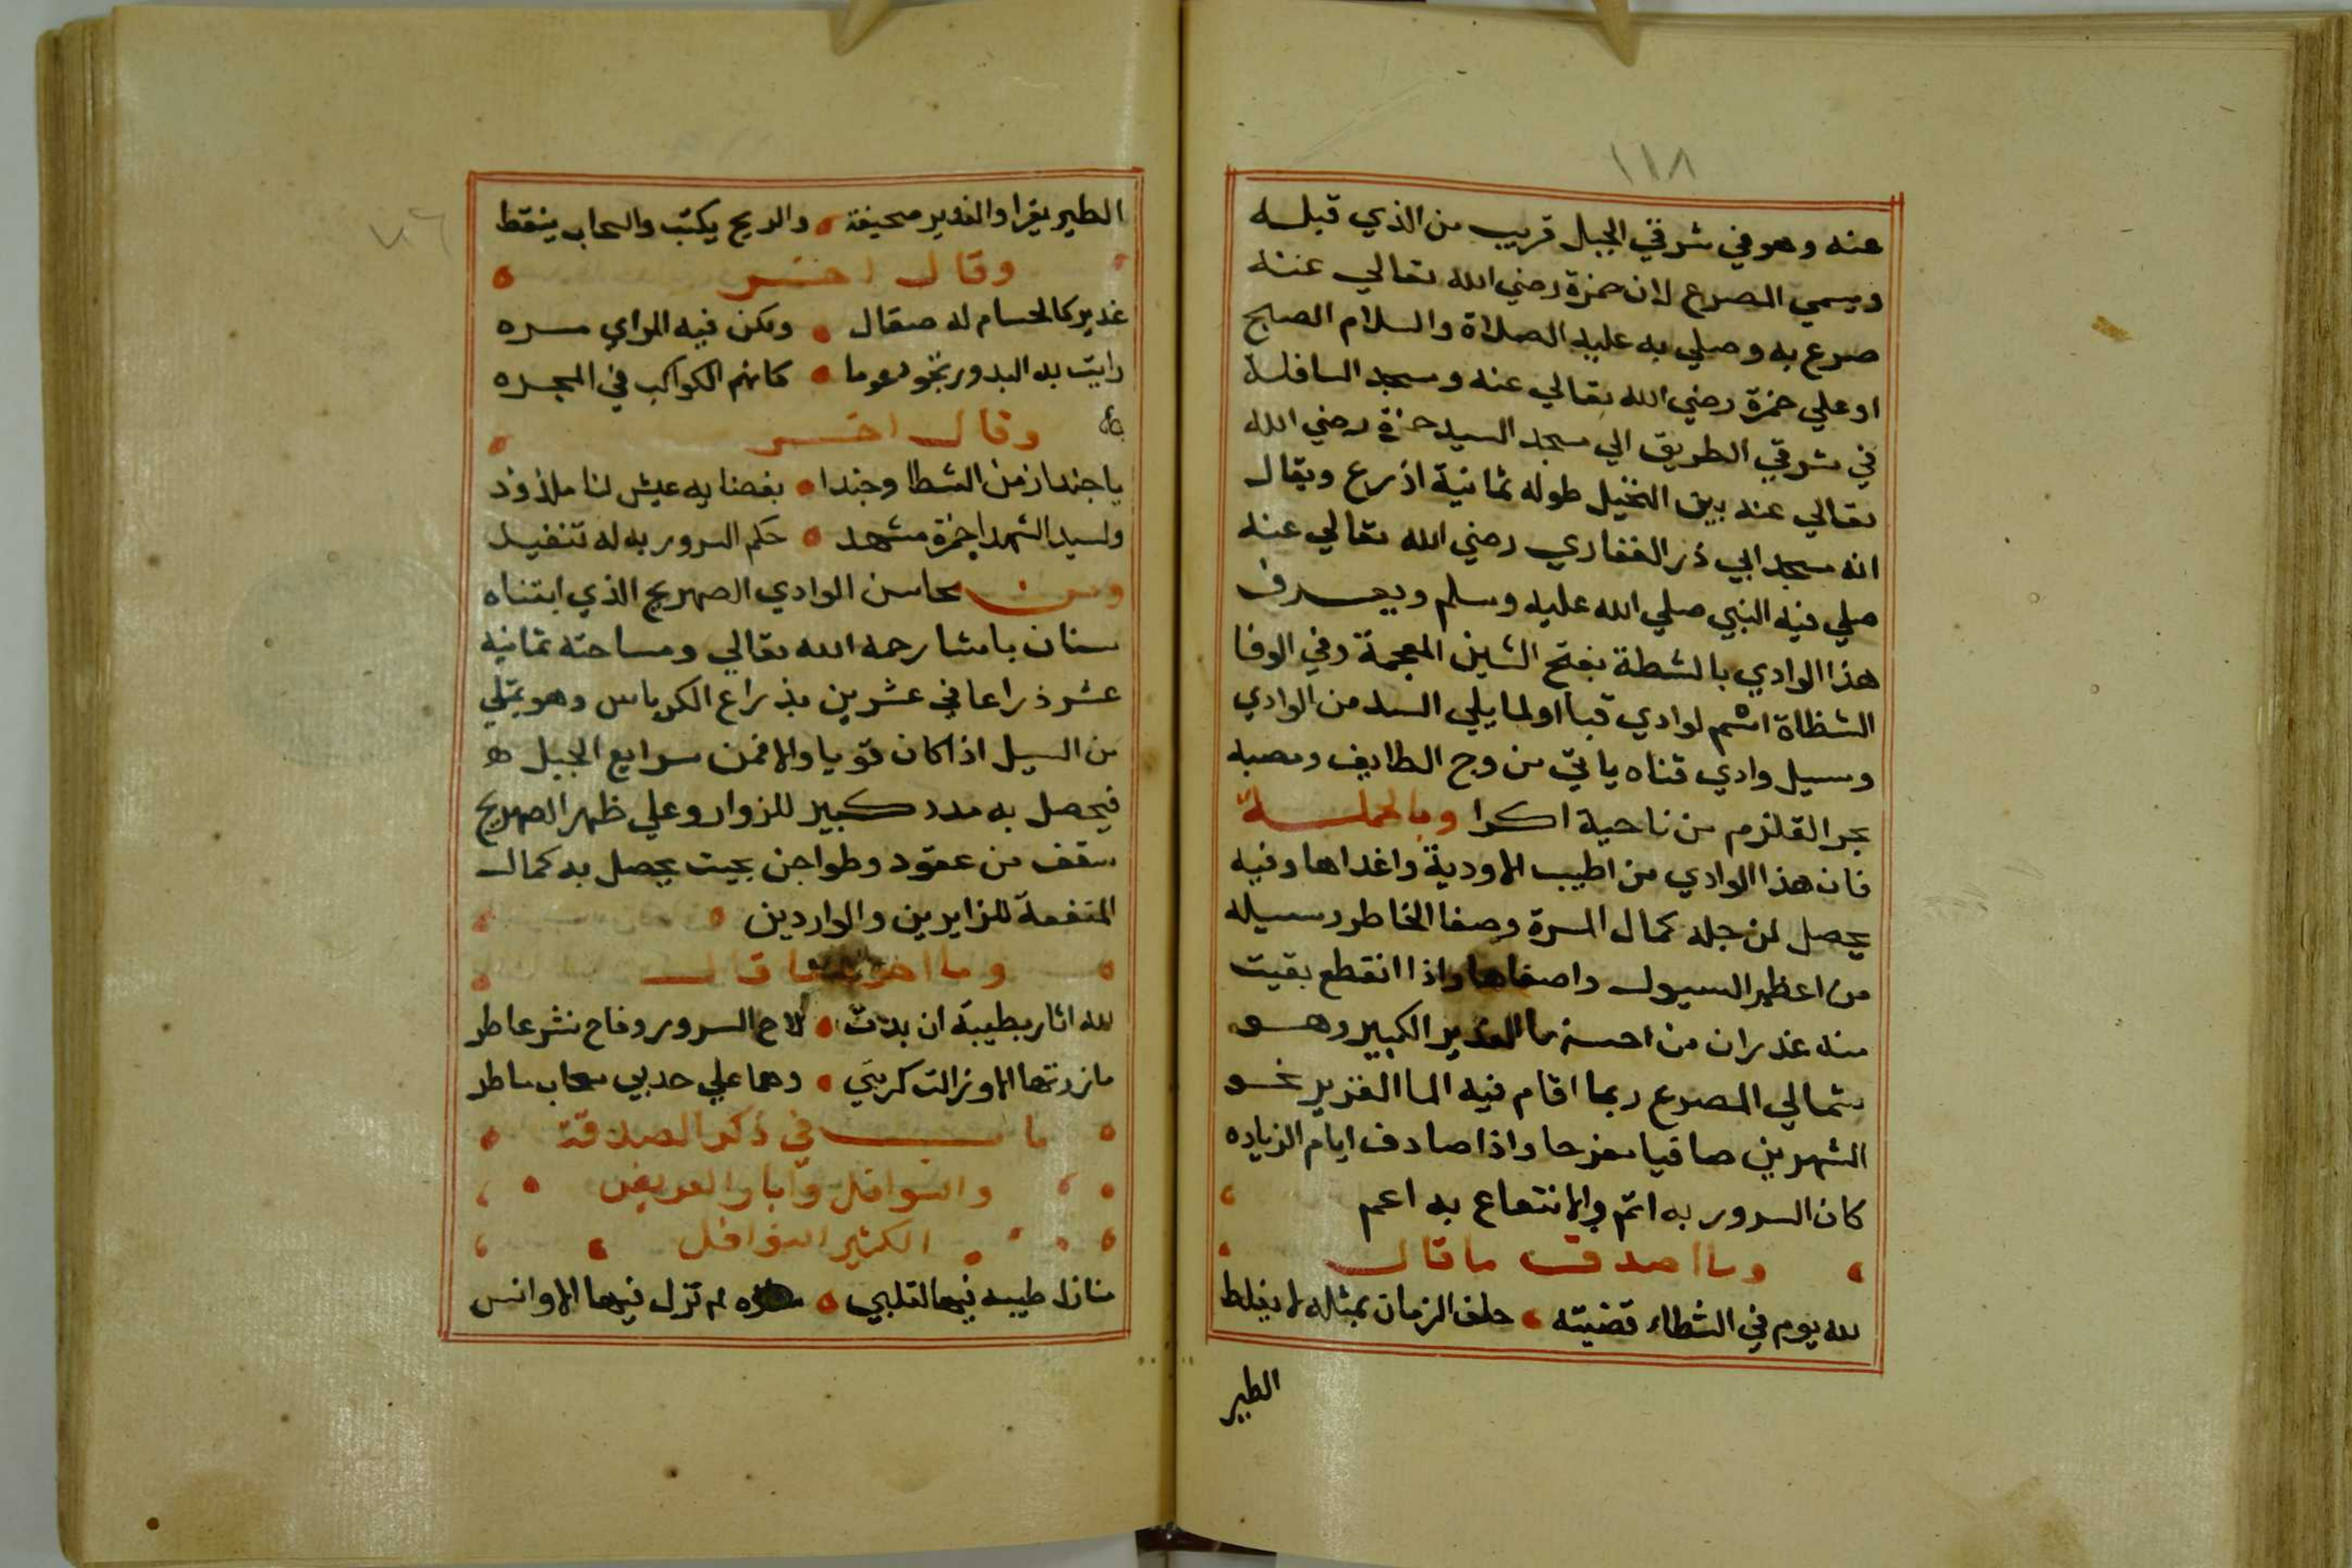 ١١٨
عنه وهو في شرقي الجبل قريب من الذي قبله
ويسمي المصرع لان حمزة رضي الله تعالي عنه
صرع به وصلي به عليه الصلاة والسلام الصبح
او علي حمزة رضي الله تعالي عنه ومسجد السافلة
في شرقي الطريق الي مسجد السيد حمزة رضي الله
تعالي عنه بين النخيل طوله ثمانية اذرع ويقال
انه مسجد ابي ذر الغفاري رضي الله تعالي عنه
صلي فيه النبي صلي الله عليه وسلم ويعرف
هذا الوادي بالشطة بفتح الشين المعجمة وفي الوفا
الشظاة اسم لوادي قبا اولما يلي السد من الوادي
وسيل وادي قناه ياتي من وج الطايف ومصبه
بحر القلزم من ناحية اكرا وبالجملة
فان هذا الوادي من اطيب الاودية واغداها وفيه
يحصل لمن جله كمال المسرة وصفا الخاطر وسيله
من اعظم السيول واصفاها واذا انقطع بقيت
منه غدران من احسنها الغدير الكبير وهو
شمالي المصرع ربما اقام فيه الما الغزير نحو
الشهرين صافيا مفرحا واذا صادف ايام الزياده
كان السرور به اتم والانتفاع به اعم
وما اصدق ما قال
لله يوم في الشطاء قضيته حلف الزمان بمثله لا يغلط
الطير
٧٦
الطير يقرا والغدير صحيفة والريح يكتب والسحاب ينقط
وقال اخر
غدير كالحسام له صقال ولكن فيه للراي مسره
رايت به البدور تجود عوما كانهم الكواكب في المجره
وقال اخر
يا حبذا زمن الشطا وحبذا بفضايه عيش لنا ملذوذ
ولسيد الشهدا حمزة مشهد حكم السرور به له تنفيذ
ومن محاسن الوادي الصهريج الذي ابتناه
سنان باشا رحمه الله تعالي ومساحته ثمانيه
عشر ذراعا في عشرين بذراع الكرباس وهو يمتلي
من السيل اذا كان قويا والا فمن سرايع الجبل
فيحصل به مدد كبير للزوار وعلي ظهر الصهريج
سقف من عقود وطواجن بحيث يحصل به كمال
المنفعة للزايرين والواردين
وما احري ما قال
لله اثار بطيبة ان بدت لاح السرور وفاح نشر عاطر
ما زرتها الا وزالت كربتي وهما علي جدبي سحاب ماطر
باب في ذكر الصدقة
والنوافل وآبار العريض
الكثير النوافل
منازل طيبه فيها لقلبي لم تزل فيها الاوانس